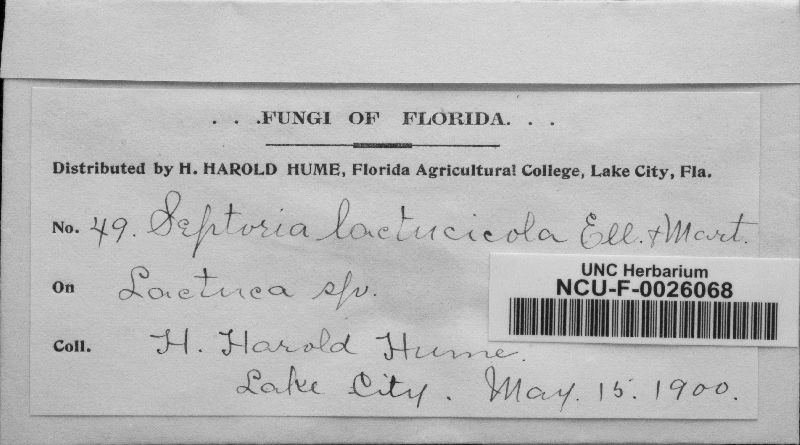 . . .FUNGI OF FLORIDA. . .
Distributed by H. HAROLD HUME, Florida Agricultural College, Lake City, Fla.
No. 49. Septoria lactucicola Ell. & Mart.
On Lactuca sp.
UNC Herbarium
NCU-F-0026068
Coll. H. Harold Hume.
Lake City. May. 15. 1900.